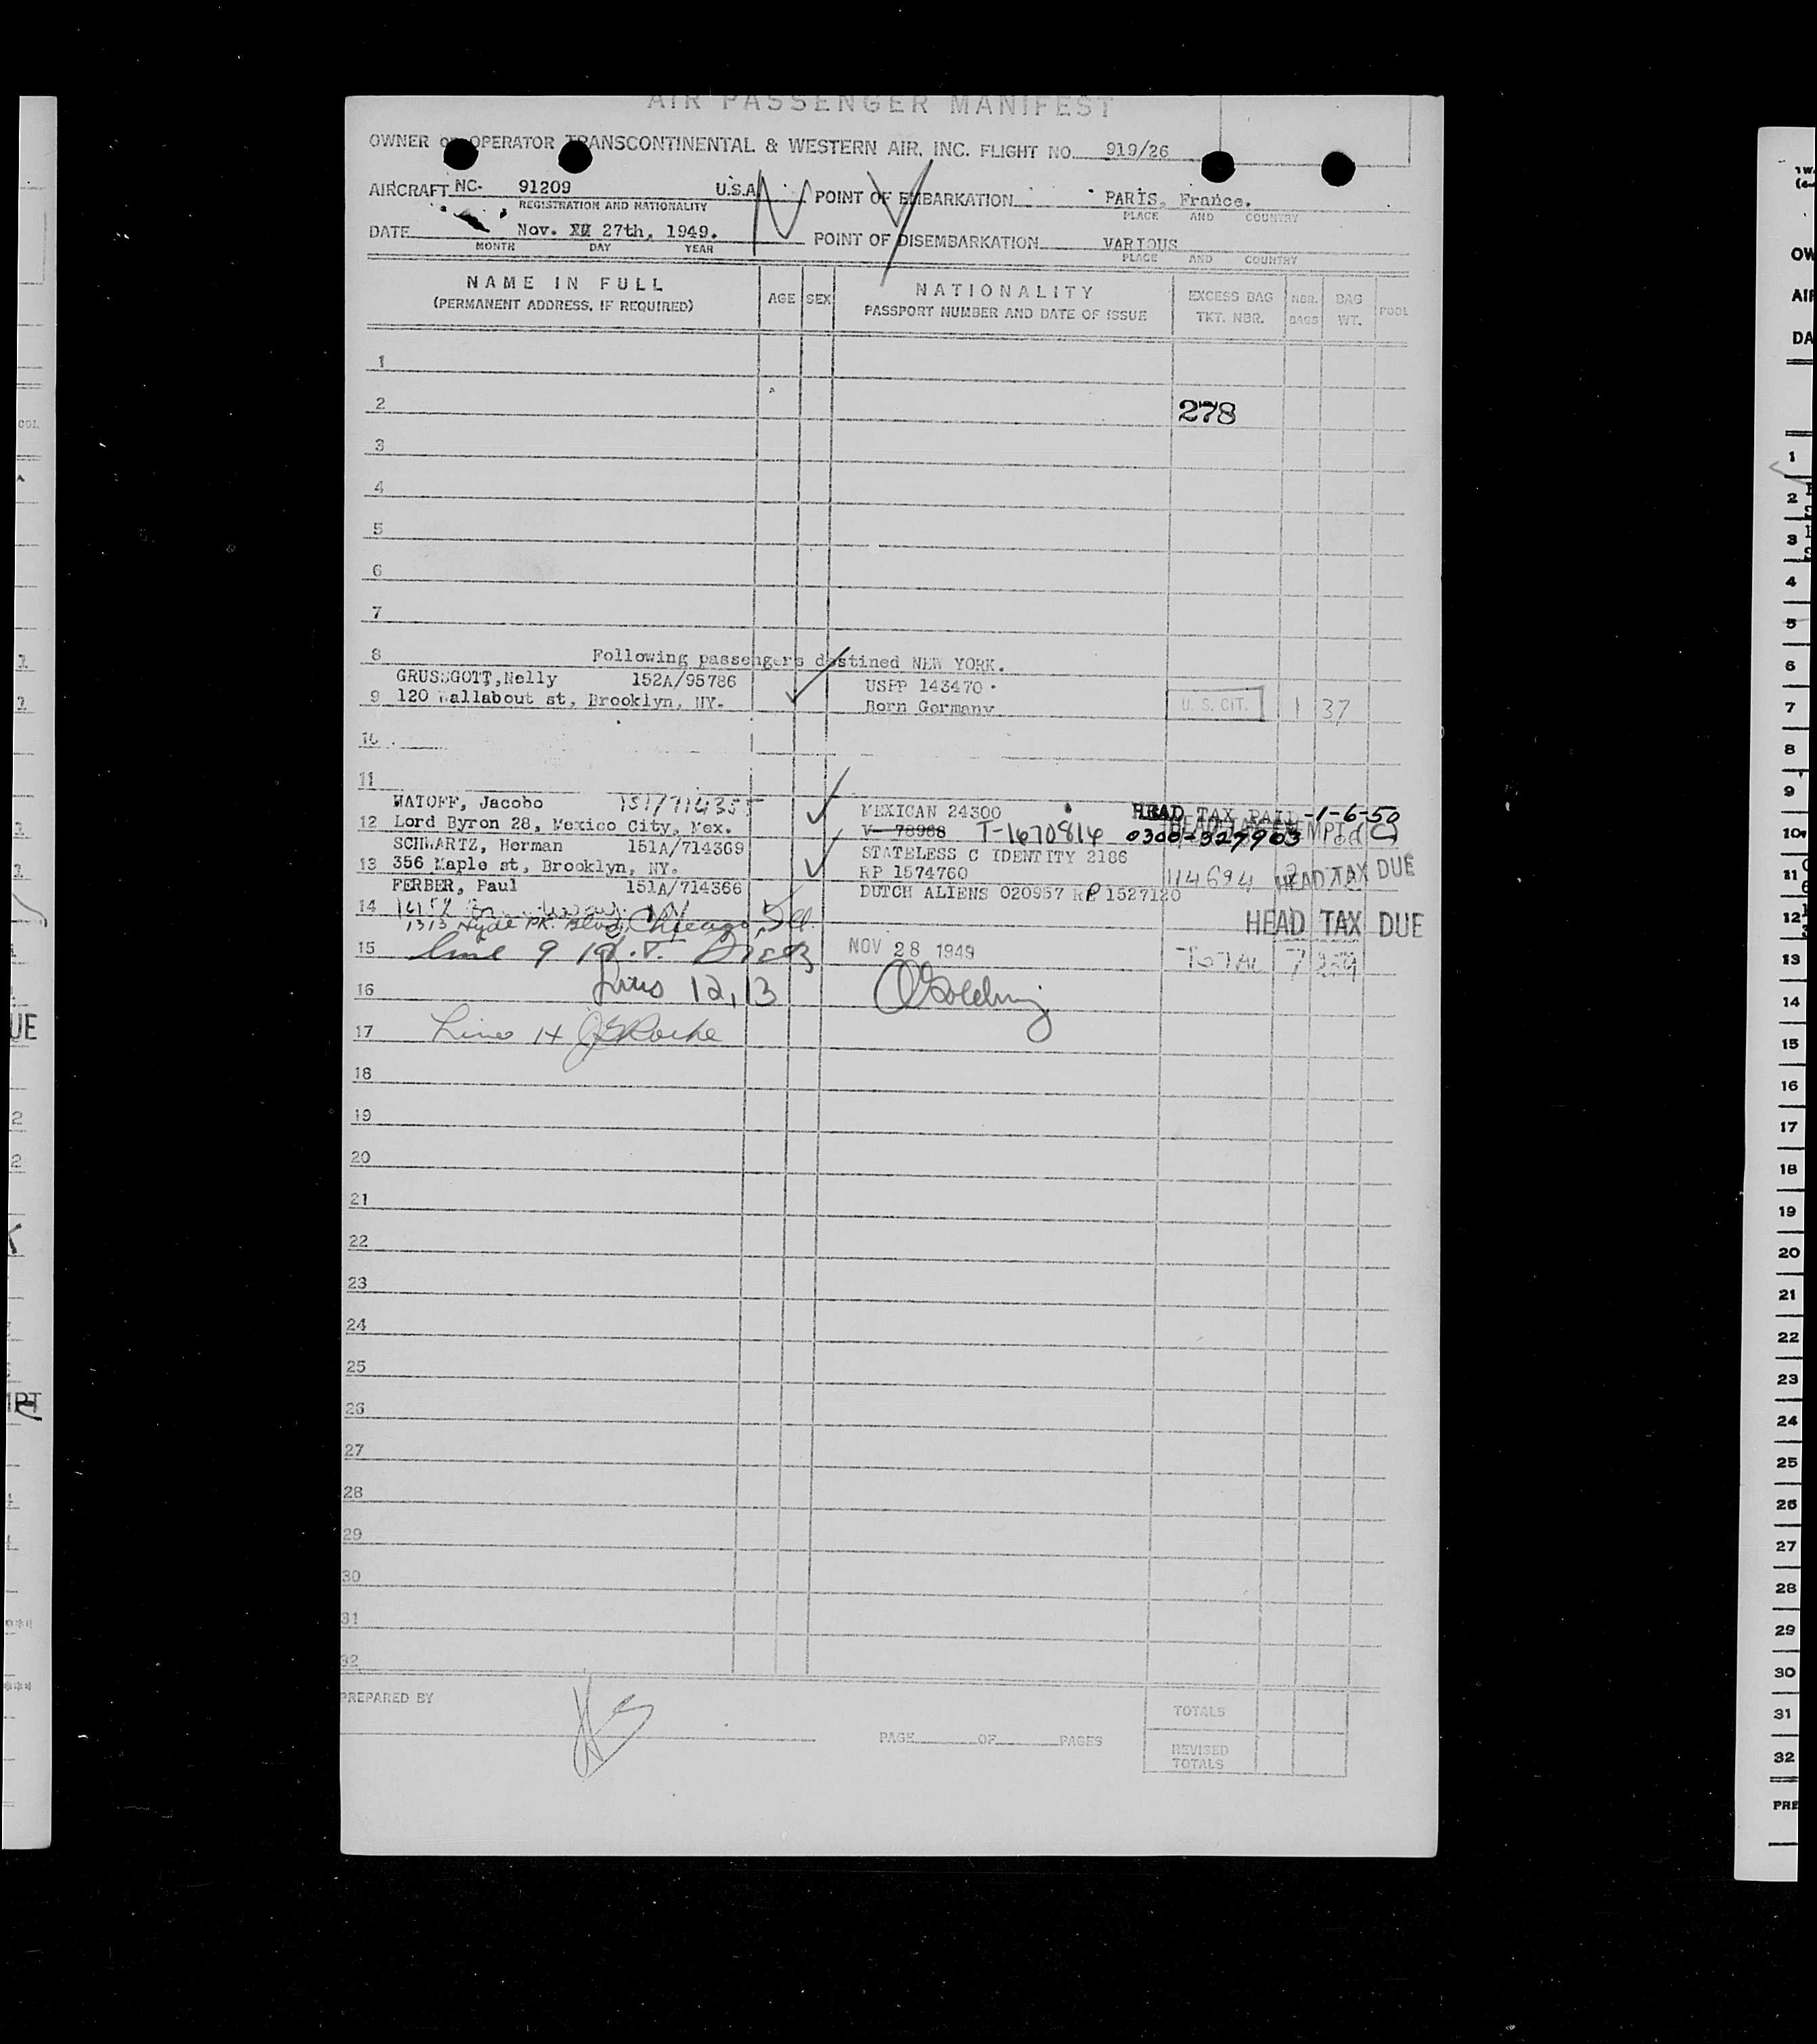 AIR PASSENGER MANIFEST
OWNER OR OPERATOR TRANSCONTINENTAL & WESTERN AIR, INC. FLIGHT NO. 919/26
AIRCRAFT NC- 91209 U.S.A. POINT OF EMBARKATION PARIS, France.
REGISTRATION AND NATIONALITY PLACE AND COUNTRY
DATE Nov. 27th, 1949. POINT OF DISEMBARKATION VARIOUS
MONTH DAY YEAR PLACE AND COUNTRY
NAME IN FULL AGE SEX NATIONALITY EXCESS BAG NBR. BAG POOL
(PERMANENT ADDRESS, IF REQUIRED) PASSPORT NUMBER AND DATE OF ISSUE TKT. NBR. BAGS WT.
1
2 278
3
4
5
6
7
8 Following passengers destined NEW YORK.
GRUSSGOTT, Nelly 152A/95786 USPP 143470
9 120 Wallabout st, Brooklyn, NY. Born Germany U. S. CIT. 1 37
10
11
WATOFF, Jacobo 151/714355 MEXICAN 24300 HEAD TAX PAID -1-6-50
12 Lord Byron 28, Mexico City, Mex. V- 78988 T-1670814 0300-327903 HEAD TAX EXEMPT
SCHWARTZ, Herman 151A/714369 STATELESS C IDENTITY 2186
13 356 Maple st, Brooklyn, NY. RP 1574760 114694 HEAD TAX DUE
FERBER, Paul 151A/714366 DUTCH ALIENS 020957 RP 1527120
14 1313 Hyde PK. Blvd, Chicago, Ill. HEAD TAX DUE
15 Line 9 NOV 28 1949 TOTAL 7
16 Lines 12, 13
17 Line 14
18
19
20
21
22
23
24
25
26
27
28
29
30
31
32
PREPARED BY
TOTALS
PAGE OF PAGES
REVISED TOTALS
OW
AIR
DA
1
2
3
4
5
6
7
8
9
10
11
12
13
14
15
16
17
18
19
20
21
22
23
24
25
26
27
28
29
30
31
32
PRE